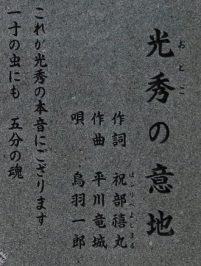 光秀の意地
おとこ
作詞 祝部禧丸
はふりべよしまる
作曲 平川竜城
唄 鳥羽一郎
これが光秀の本音にござります
一寸の虫にも 五分の魂